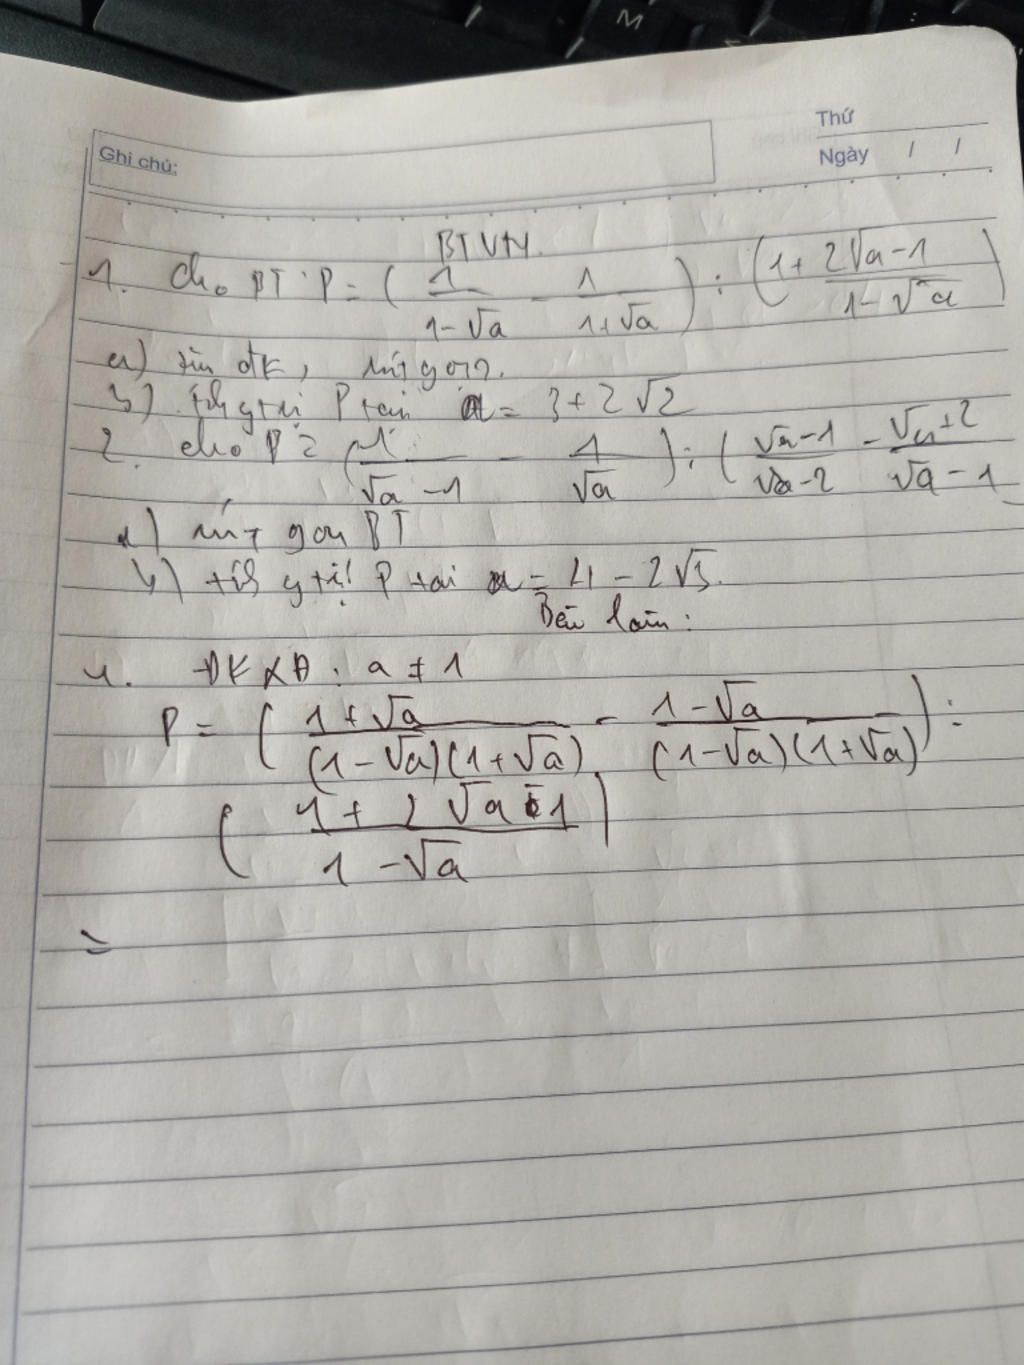 M
Thứ
Ghi chú:
Ngày / /
BTVN.
1. Cho BT: P = ( 1/(1-√a) - 1/(1+√a) ) : ( (1+ 2√a-1)/(1-√a) )
a) tìm đk, rút gọn.
b) tính gtrị P tại a = 3+2√2
2. cho P = ( 1/(√a-1) - 1/√a ) : ( (√a-1)/(√a-2) - (√a+2)/(√a-1)
a) rút gọn BT
b) tính gtrị P tại a = 4-2√3.
Bài làm:
1. ĐKXĐ: a ≠ 1
P = ( (1+√a)/((1-√a)(1+√a)) - (1-√a)/((1-√a)(1+√a)) ) :
( (1+2√a-1)/(1-√a) )
=